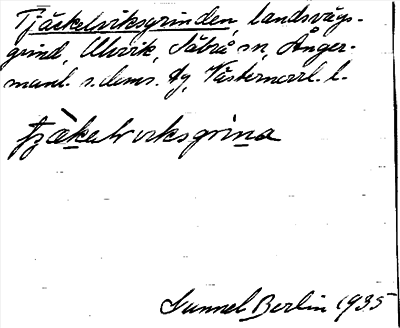 Tjäckelviksgrinden, landsvägs-
grind, Ulvvik, Säbrå sn, Ånger-
manl. s. doms. dg, Västernorrl. l.
tjäkelviksgrina
Gunnel Berlin 1935